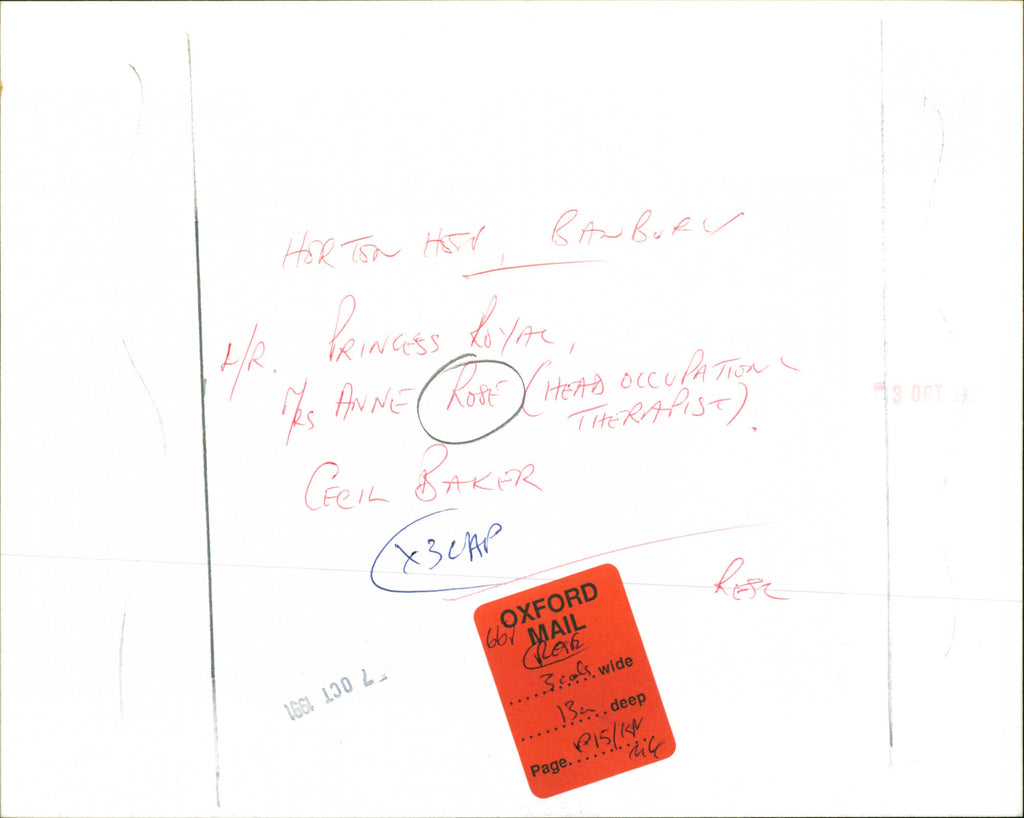 HORTON HOSP, BANBURY
L/R. PRINCESS ROYAL,
MRS ANNE ROSE (HEAD OCCUPATION
THERAPIST).
CECIL BAKER
X3 CAP
ROSE
OXFORD
MAIL
ROSE
3 cols wide
13 deep
Page P15/
- 7 OCT 1991
3 OCT